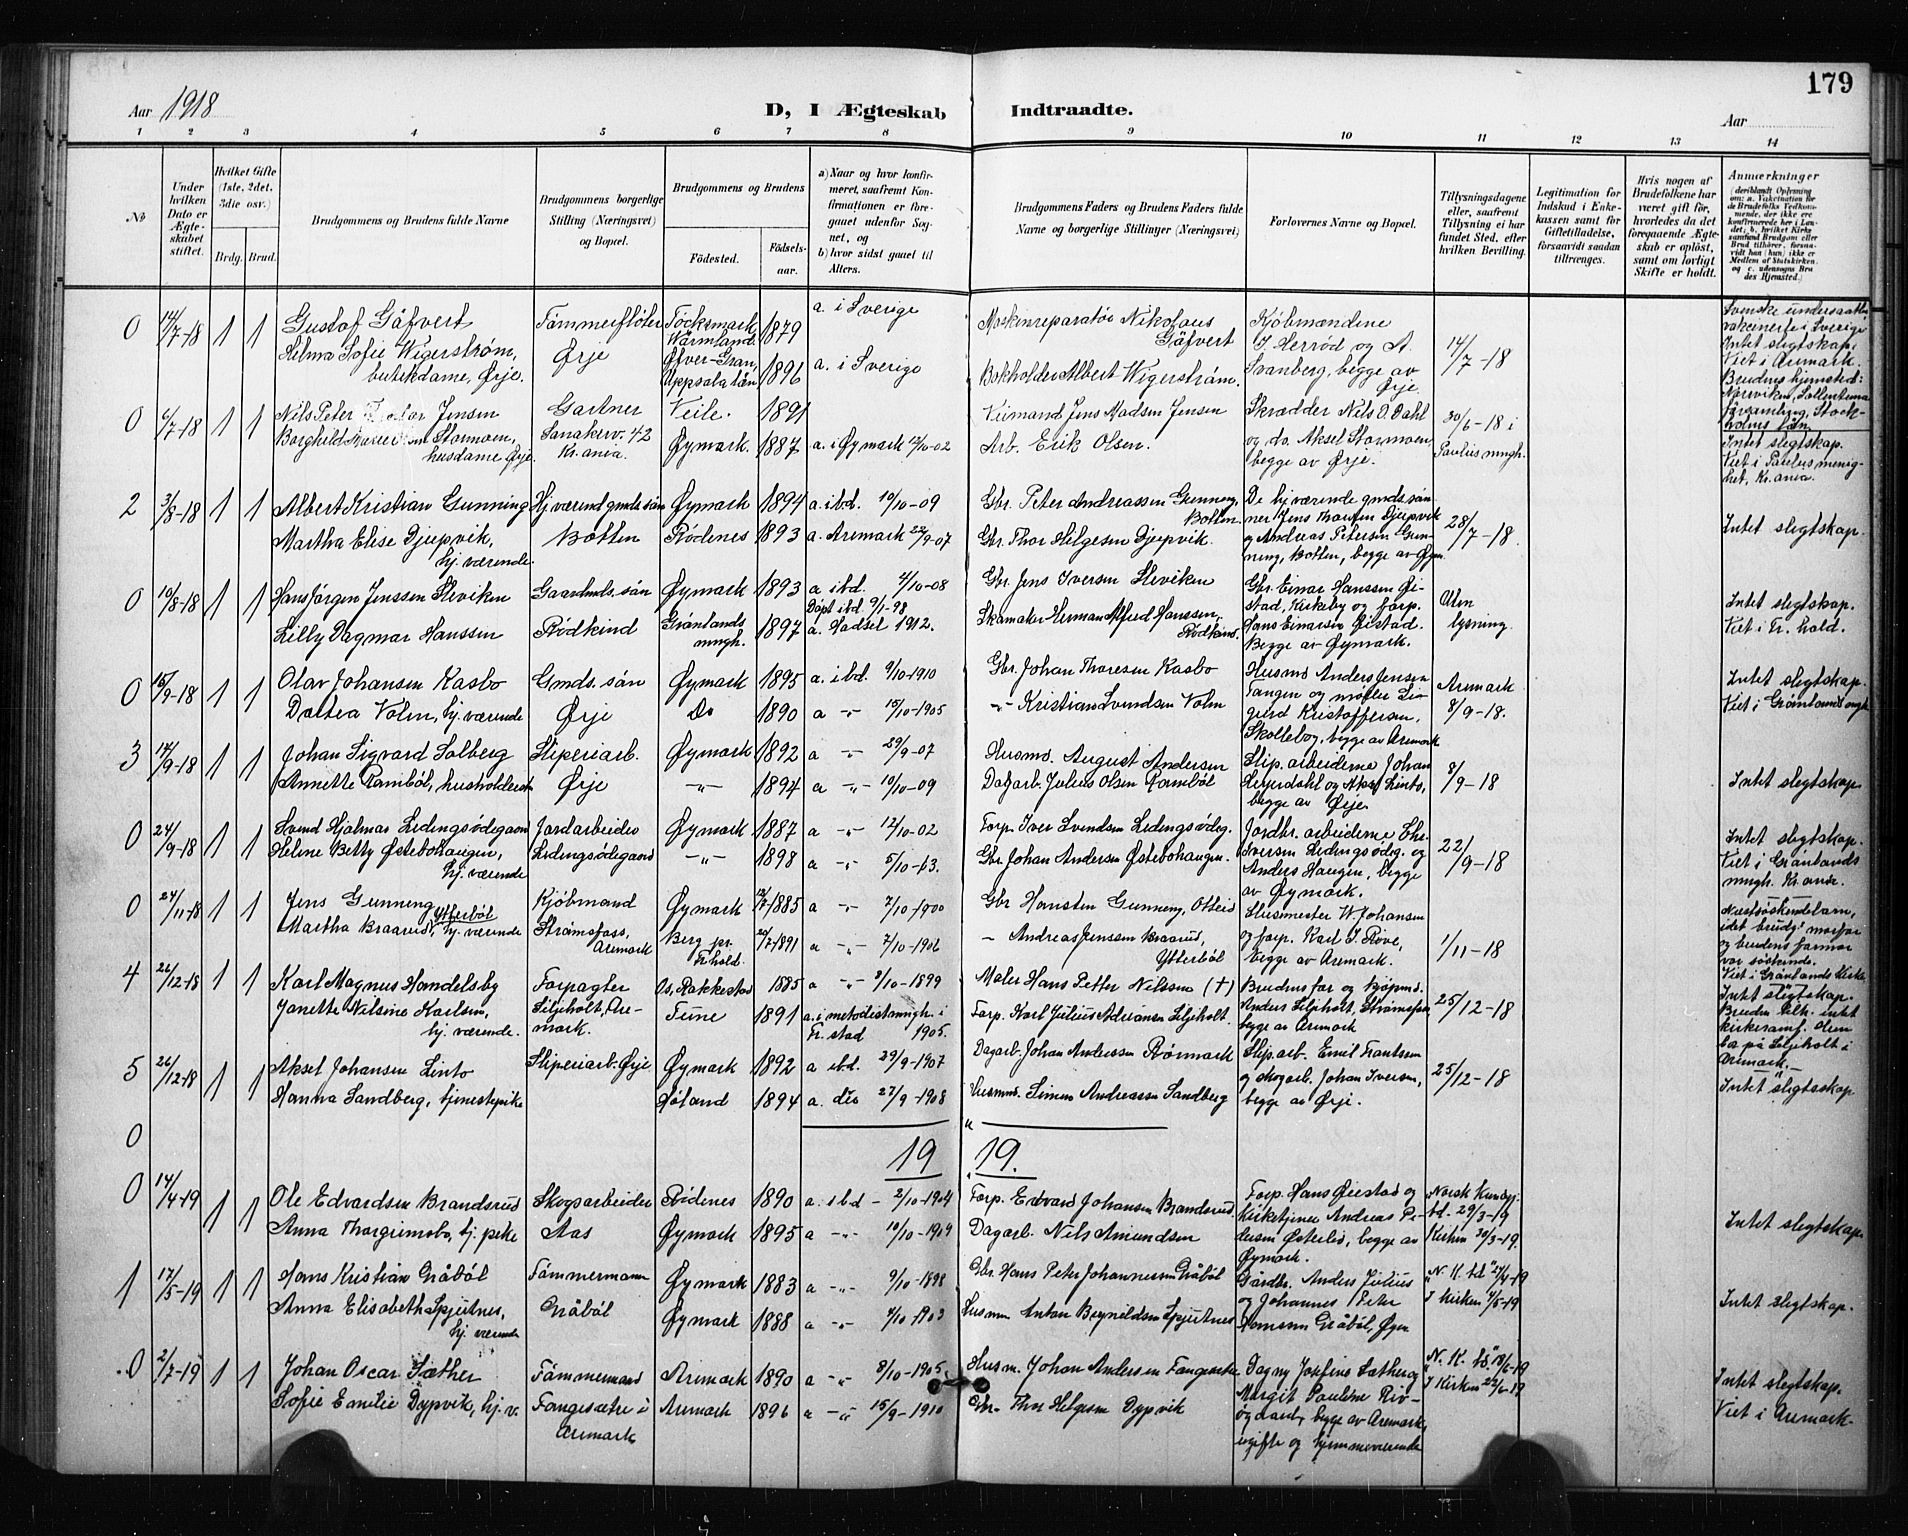 179
Aar 1918
D, I Ægteskab Indtraadte.
Aar
1 2 3 4 5 6 7 8 9 10 11 12 13 14
No
Under hvilken Dato er Ægteskabet stiftet.
Hvilket Gifte (1ste, 2det, 3die osv.)
Brdg. Brud.
Brudgommens og Brudens fulde Navne
Brudgommens borgerlige Stilling (Næringsvei) og Bopæl.
Brudgommens og Brudens
Fødested.
Fødselsaar.
a) Naar og hvor konfirmeret, saafremt Konfirmationen er foregaaet udenfor Sognet, og
b) hvor sidst gaaet til Alters.
Brudgommens Faders og Brudens Faders fulde Navne og borgerlige Stillinger (Næringsvei)
Forlovernes Navne og Bopæl.
Tillysningsdagene eller, saafremt Tillysning ei har fundet Sted, efter hvilken Bevilling.
Legitimation for Indskud i Enkekassen samt for Giftetilladelse, forsaavidt saadan tiltrænges.
Hvis nogen af Brudefolkene har været gift før, hvorledes da det foregaaende Ægteskab er opløst, samt om lovligt Skifte er holdt.
Anmærkninger
0 14/7-18 1 1 Gustaf Gäfvert Tømmerfløter Töcksmark Wärmland 1879 a. i Sverige Maskinreparatør Nikolaus Gäfvert Kjøbmændene J. Herrød og A. Svanberg, begge av Ørje 14/7-18
Helma Sofie Wigerstrøm, butikdame, Ørje. Ørje Öfver-Gran, Uppsala län 1896 a. i Sverige Bokholder Albert Wigerstrøm.
Svenske undersaatter vakcinerte i Sverige Intet slegtskap. Viet i Aremark. Brudens hjemsted: Norrviken, Sollentuna församling, Stockholms län
0 6/7-18 1 1 Nils Peter Jensen Gartner Veile. 1891 Veimand Jens Madsen Jensen Skrædder Nils O. Dahl og do. Aksel Stormoen, begge av Ørje. 30/6-18 i Paulus mngh.
Borghild Stormoen, husdame, Ørje. Sanakerv. 42 Kr.ania. Øymark. 1887 a. i Øymark 12/10-02 Arb. Erik Olsen.
Intet slegtskap. Viet i Paulus menighet, Kr.ania.
2 3/8-18 1 1 Albert Kristian Gunning Hj.værend gmds.søn Øymark 1894 a. ibd. 10/10-09 Gbr. Peter Andreassen Gunning, Botten. De hj.værende gmds.sønner Jens Thorsten Djupvik og Andreas Petersen Gunning, Botten, begge av Øym. 28/7-18.
Martha Elise Djupvik, hj. værende. Botten Rødenes 1893 a. Aremark 22/9-07 Gbr. Thor Helgesen Djupvik.
Intet slegtskap.
0 10/8-18 1 1 Hans Jørgen Jenssen Sleviken Gaardmds. søn Øymark 1893 a ibd. 4/10-08 Gbr. Jens Iversen Sleviken Gbr. Einar Hanssen Øistad, Kirkeby og forp. Hans Einarsen Øistad. Begge av Øymark. Uten lysning.
Døpt ibd. 9/1-98
Lilly Dagmar Hanssen Rødkind Grønlands mngh. 1897 a. Hadsel 1912. Skomaker Herman Alfred Hanssen, Rødkind.
Intet slegtskap. Viet i Fr.hald.
0 15/9-18 1 1 Olav Johansen Kasbo Gmds. søn Øymark 1895 a. ibd. 9/10-1910 Gbr. Johan Thoresen Kasbo Husmd Anders Jensen Tangen og møller Sigurd Kristoffersen, Skolleborg, begge av Aremark Aremark 8/9-18.
Dortea Volm, hj.værende Ørje Do 1890 a -"- 15/10-1905 -"- Kristian Svendsen Volm
Intet slegtskap. Viet i Grønlands mngh
3 14/9-18 1 1 Johan Sigvard Solberg Sliperiarb. Øymark 1892 a -"- 29/9-07 Husmd. August Andersen Slip.arbeiderne Johan Heyerdahl og Aksel Linto, begge av Ørje 8/9-18
Annette Rambøl, husholderske Ørje -"- 1894 a -"- 10/10-09 Dagarb. Julius Olsen Rambøl
Intet slegtskap
0 24/9-18 1 1 Svend Hjalmar Ledingsødegaard Jordarbeider Øymark 1887 a -"- 12/10-02 Forp. Iver Svendsen Ledingsødeg. Jordbr.arbeiderne Iversen Ledingsødeg. og Anders Haugen, begge av Øymark. 22/9-18
Helene Betty Østebohaugen, hj. værende Ledingsødegaard -"- 1898 a -"- 5/10-13. Gbr. Johan Andersen Østebohaugen.
Intet slegtskap. Viet i Grønlands mngh. Kr.ania.
0 24/11-18 1 1 Jens Gunneng Kjøbmand Øymark 1885 a -"- 7/10-1900 Gbr Hansten Gunneng, Otteid Slusemester W. Johansen og forp. Karl J. Røve, begge av Aremark. 1/11-18
Martha Braarud, Ytterbøl hj. værende Strømsfoss, Aremark Berg pr. Fr.hald. 1891 a -"- 7/10-1906 - Andreas Jenssen Braarud, Ytterbøl
Næstsøskendebarn, idet brudg.s morfar og brudens farmor var søskinde. Viet i Grønlands kirke
4 26/12-18 1 1 Karl Magnus Handelsby Forpagter Os, Rakkestad 1885 a -"- 8/10-1899 Maler Hans Petter Nilssen (†) Brudens far og kjøpmd. Anders Liljeholt, Strømsfoss begge av Aremark 25/12-18
Janette Nilsine Karlsen, hj. værende. Liljeholt, Aremark. Tune 1891 a. i metodistmngh. i Fr.stad 1905. Forp. Karl Julius Adriansen Liljeholt.
Intet slegtskap.
5 26/12-18 1 1 Aksel Johansen Linto Sliperiarb. Ørje Øymark 1892 a ibd. 29/9-1907 Dagarb. Johan Anderssen Rønmark Slip.arb. Emil Frantsen og skogarb. Johan Iversen, begge av Ørje. 25/12-18
Hanna Sandberg, tjenestepike Høland 1894 a. do 27/9-1908 Husmd. Simen Andreassen Sandberg
Intet slegtskap
0
19 19.
0 14/4-19 1 1 Ole Edvardsen Brandsrud Skogsarbeider Rødenes 1890 a. ibd - 2/10-1904 Forp. Edvard Johansen Brandsrud Forp. Hans Øiestad og kirketjener Andreas Pedersen Østerbø, begge av Øymark. "Norsk Kundgj.td. 29/3-19 Kirken 30/3-19.
Anna Thorgrimsbø, hj. pike Aas Øymark 1895 a -"- 10/10-1909 Dagarb. Nils Amundsen
Intet slegtskap
1 17/5-19 1 1 Hans Kristian Gråbøl Tømmermann Øymark 1883 a -"- 9/10-1898 Gbr. Hans Peter Johannesen Gråbøl Gårdbr. Anders Julius og Johannes Peter Hansen Gråbøl, Øym "N. K. td" 24/4-19 I kirken 4/5-19
Anna Elisabeth Spjutnes, hj. værende Gråbøl Øymark 1888 a -"- 4/10 1903 Husmn Anton Spjutnes
Intet slegtskap.
0 2/7-19 1 1 Johan Oscar Sæther Tømmermand Aremark 1890 a -"- 8/10-1905 Husm. Johan Andersen Tangesætre Dagny Josefine Sæther og Margit Pauline begge av Aremark, ugifte og hjemmeværende "N. K. td." 18/6-19 I Kirken 22/6-19
Sofie Emilie Dypvik, hj. v. Tangesætre i Aremark Aremark 1896 a -"- 15/9-1910 Gbr- Thor Helgesen Dypvik
Intet slegtskap. Viet i Aremark-